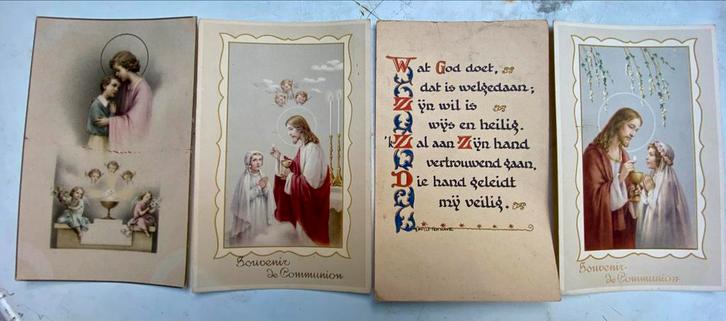 Souvenir
de Communion
Wat God doet,
dat is welgedaan;
Zijn wil is
wijs en heilig.
'k Zal aan Zijn hand
vertrouwend gaan,
Die hand geleidt
mij veilig.
Souvenir
de Communion